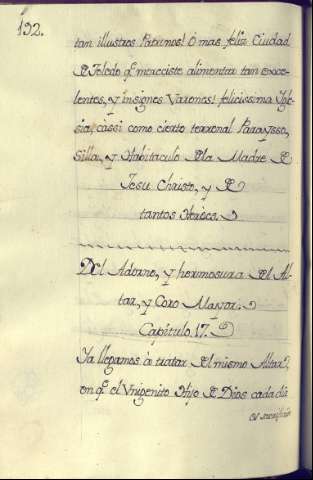 192.
tam illustres Patronos! O mas feliz Ciudad
de Toledo q̃ mereciste alimentar tan exce-
lentes, y insignes Varones! felicissima Igle-
sia, cassi como cierto terrenal Parayso,
Silla, y Habitaculo de la Madre de
Jesu Christo, y de
tantos Heròes.
Del Adorno, y hermosura del Al-
tar, y Coro Mayor.
Capitulo 17.
Ya llegamos à tratar del mismo Altar,
en q̃ el Unigenito Hijo de Dios cada dia
es sacrificado